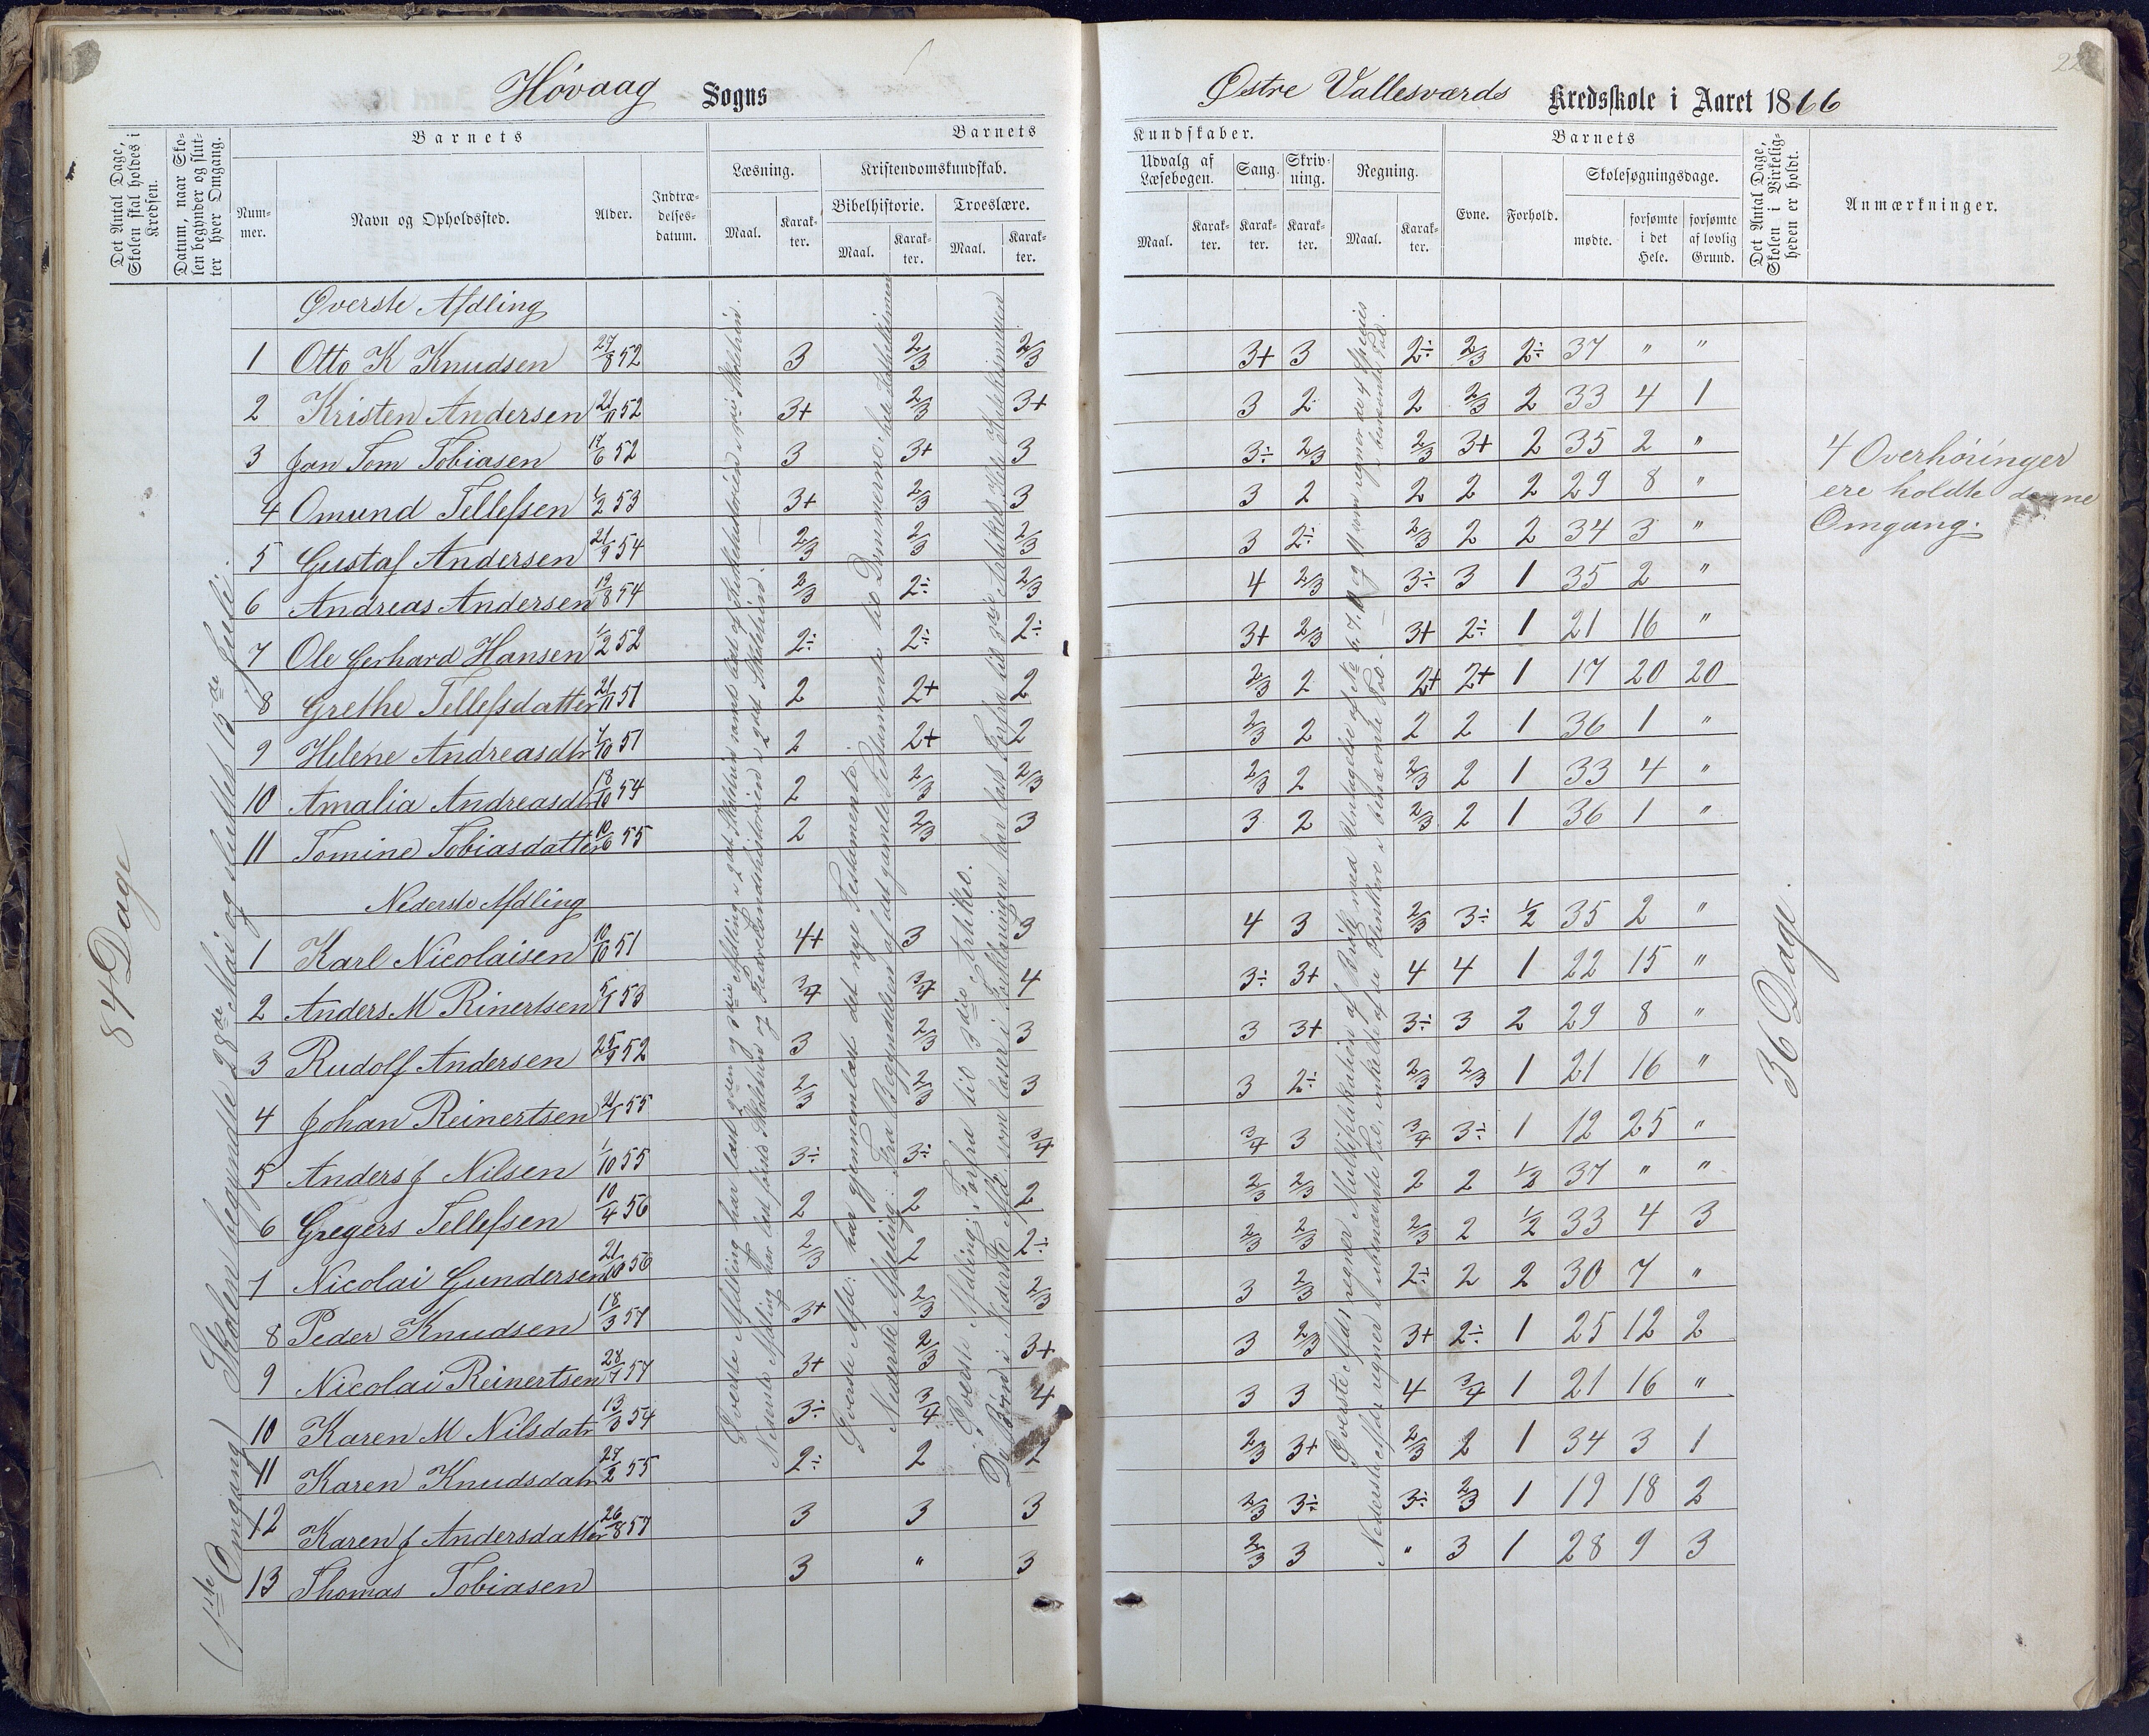 Høvaag Sogns
Østre Vallesværds Kredsskole i Aaret 1866
22
Det Antal Dage, Skolen skal holdes i Kredsen.
Datum, naar Skolen begynder og slutter hver Omgang.
Barnets
Nummer.
Navn og Opholdssted.
Alder.
Indtrædelsesdatum.
Barnets
Læsning.
Maal.
Karakter.
Kristendomskundskab.
Bibelhistorie.
Maal.
Karakter.
Troeslære.
Maal.
Karakter.
Kundskaber.
Udvalg af Læsebogen.
Maal.
Karakter.
Sang.
Karakter.
Skrivning.
Karakter.
Regning.
Maal.
Karakter.
Barnets
Evne.
Forhold.
Skolesøgningsdage.
mødte.
forsømte i det Hele.
forsømte af lovlig Grund.
Det Antal Dage, Skolen i Virkeligheden er holdt.
Anmærkninger.
84 Dage
(1ste Omgang) Skolen begyndte 28de Mai og sluttet 13de Juli.
Øverste Afdling
1 Otto K Knudsen 27/8 52 3 2/3 2/3 3+ 3 2÷ 2/3 2÷ 37 " "
2 Kristen Andersen 21/11 52 3+ 2/3 3+ 3 2 2 2/3 2 33 4 1
3 Jan Tom Tobiasen 17/6 52 3 3+ 3 3÷ 2/3 2/3 3+ 2 35 2 "
4 Omund Tellefsen 1/2 53 3+ 2/3 3 3 2 2 2 2 29 8 "
5 Gustaf Andersen 21/9 54 2/3 2/3 2/3 3 2÷ 2/3 2 2 34 3 "
6 Andreas Andersen 19/8 54 2/3 2÷ 2/3 4 2/3 3÷ 3 1 35 2 "
7 Ole Gerhard Hansen 1/2 52 2÷ 2÷ 2÷ 3+ 2/3 3+ 2÷ 1 21 16 "
8 Grethe Tellefsdatter 21/11 51 2 2+ 2 2/3 2 2+ 2+ 1 17 20 20
9 Helene Andreasdtr 1/10 51 2 2+ 2 2/3 2 2 2 1 36 1 "
10 Amalia Andreasdtr 18/10 54 2 2/3 2/3 2/3 2 2/3 2 1 33 4 "
11 Tomine Tobiasdatter 10/6 55 2 2/3 3 3 2 2/3 2 1 36 1 "
Nederste Afdling
1 Karl Nicolaisen 10/10 51 4+ 3 3 4 3 2/3 3÷ 1/2 35 2 "
2 Anders M Rinertsen 5/1 53 3/4 3/4 4 3÷ 3+ 4 4 1 22 15 "
3 Rudolf Andersen 25/9 52 3 2/3 3 3 3+ 3÷ 3 2 29 8 "
4 Johan Reinertsen 21/1 55 2/3 2/3 3 3 2÷ 2/3 2/3 1 21 16 "
5 Anders J Nilsen 1/10 55 3÷ 3÷ 3/4 3/4 3 3/4 3÷ 1 12 25 "
6 Gregers Tellefsen 10/4 56 2 2 2 2/3 2/3 2 2 1/2 37 " "
7 Nicolai Gundersen 21/10 56 2/3 2 2÷ 2/3 2/3 2/3 2 1/2 33 4 3
8 Peder Knudsen 18/3 57 3+ 2/3 2/3 3 2/3 2÷ 2 2 30 7 "
9 Nicolai Reinertsen 28/7 57 3+ 2/3 3+ 3 2/3 3+ 2÷ 1 25 12 2
10 Karen M Nilsdatr 13/3 54 3÷ 3/4 4 3 3 4 3/4 1 21 16 "
11 Karen Knudsdatr 27/2 55 2÷ 2 2 2/3 3+ 2/3 2 1 34 3 1
12 Karen J Andersdatter 26/8 57 3 3 3 2/3 3÷ 3÷ 2/3 1 19 18 2
13 Thomas Tobiasen 3 " 3 2/3 3 " 3 1 28 9 3
Øverste Afdling har læst
Nederste Afdling har læst
Øverste Afd: har gjennemlæst det nye Testamente.
Nederste Afdeling: Fra Begyndelsen af det gamle Testamente til Dommerne.
Øverste Afdling: Forfra til 3die Artikel.
De Børn i Nederste Afd. som læser i Forklaringen har læst forfra til 3die Artikel.
Øverste Afd: regner Multiplikation af Brøk med Undtagelse af
Nederste Afd: regner
36 Dage.
4 Overhøringer
ere holdte denne
Omgang.